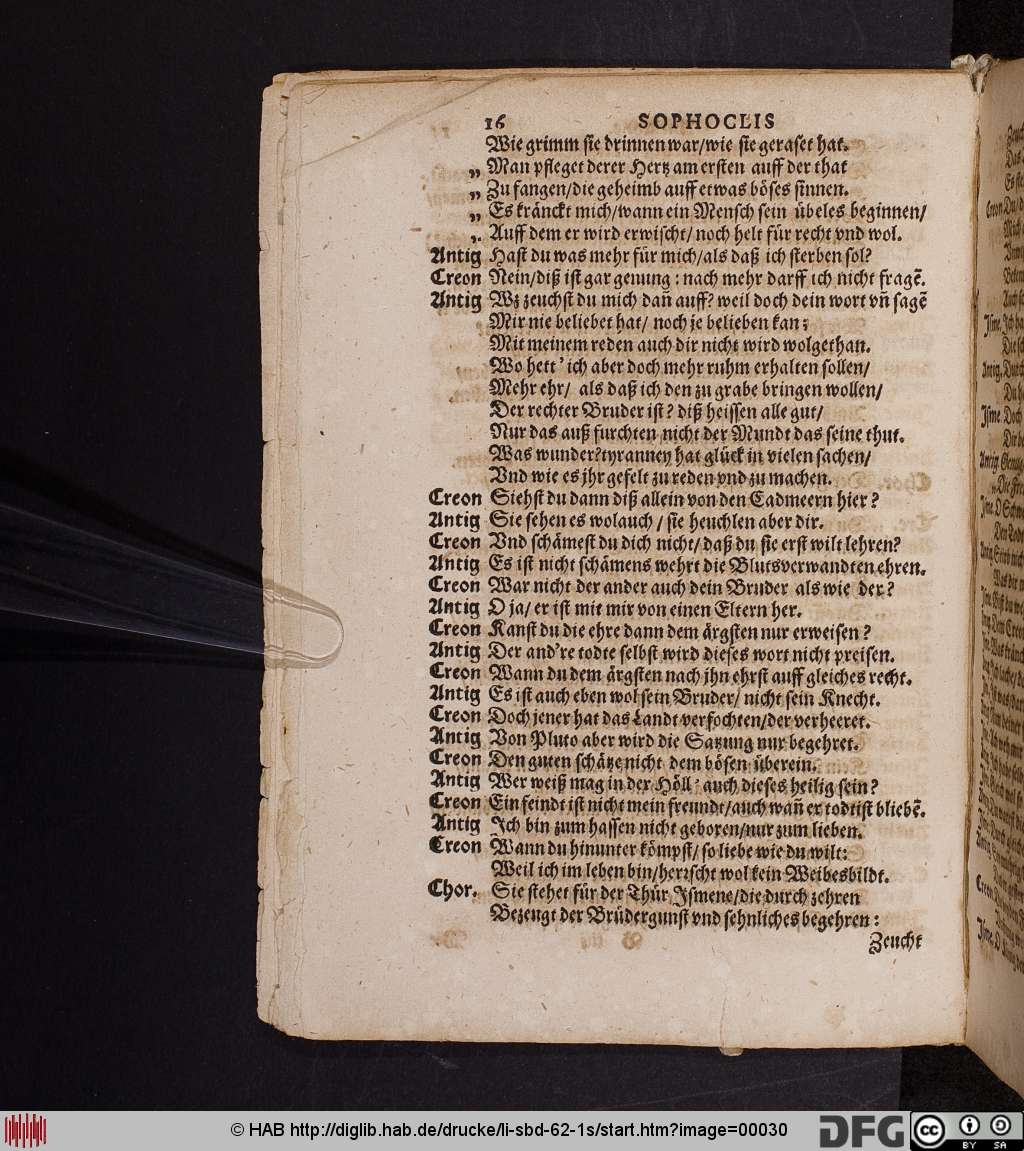 16 SOPHOCLIS
Wie grimm sie drinnen war/wie sie geraset hat.
„ Man pfleget derer Hertz am ersten auff der that
„ Zu fangen/die geheimb auff etwas böses sinnen.
„ Es kränckt mich/wann ein Mensch sein übeles beginnen/
„ Auff dem er wird erwischt/ noch helt für recht vnd wol.
Antig Hast du was mehr für mich/als daß ich sterben sol?
Creon Nein/diß ist gar genung: nach mehr darff ich nicht fragẽ.
Antig Wz zeuchst du mich dañ auff? weil doch dein wort vñ sagẽ
Mir nie beliebet hat/ noch je belieben kan;
Mit meinem reden auch dir nicht wird wolgethan.
Wo hett' ich aber doch mehr ruhm erhalten sollen/
Mehr ehr/ als daß ich den zu grabe bringen wollen/
Der rechter Bruder ist? diß heissen alle gut/
Nur das auß furchten nicht der Mundt das seine thut.
Was wunder?tyranney hat glück in vielen sachen/
Vnd wie es jhr gefelt zu reden vnd zu machen.
Creon Siehst du dann diß allein von den Cadmeern hier?
Antig Sie sehen es wol auch/ sie heuchlen aber dir.
Creon Vnd schämest du dich nicht/ daß du sie erst wilt lehren?
Antig Es ist nicht schämens wehrt die Blutsverwandten ehren.
Creon War nicht der ander auch dein Bruder als wie der?
Antig O ja/ er ist mit mir von einen Eltern her.
Creon Kanst du die ehre dann dem ärgsten nur erweisen?
Antig Der and're todte selbst wird dieses wort nicht preisen.
Creon Wann du dem ärgsten nach jhn ehrst auff gleiches recht.
Antig Es ist auch eben wol sein Bruder/ nicht sein Knecht.
Creon Doch jener hat das Landt verfochten/der verheeret.
Antig Von Pluto aber wird die Satzung nur begehret.
Creon Den guten schätze nicht dem bösen überein.
Antig Wer weiß mag in der Höll' auch dieses heilig sein?
Creon Ein feindt ist nicht mein freundt/auch wañ er todt ist bliebẽ.
Antig Ich bin zum hassen nicht geboren/nur zum lieben.
Creon Wann du hinunter kömpst/ so liebe wie du wilt:
Weil ich im leben bin/herrscht wol kein Weibesbildt.
Chor. Sie stehet für der Thür Ismene/die durch zehren
Bezeugt der Brüdergunst vnd sehnliches begehren:
Zeucht
© HAB http://diglib.hab.de/drucke/li-sbd-62-1s/start.htm?image=00030
DFG
cc BY SA